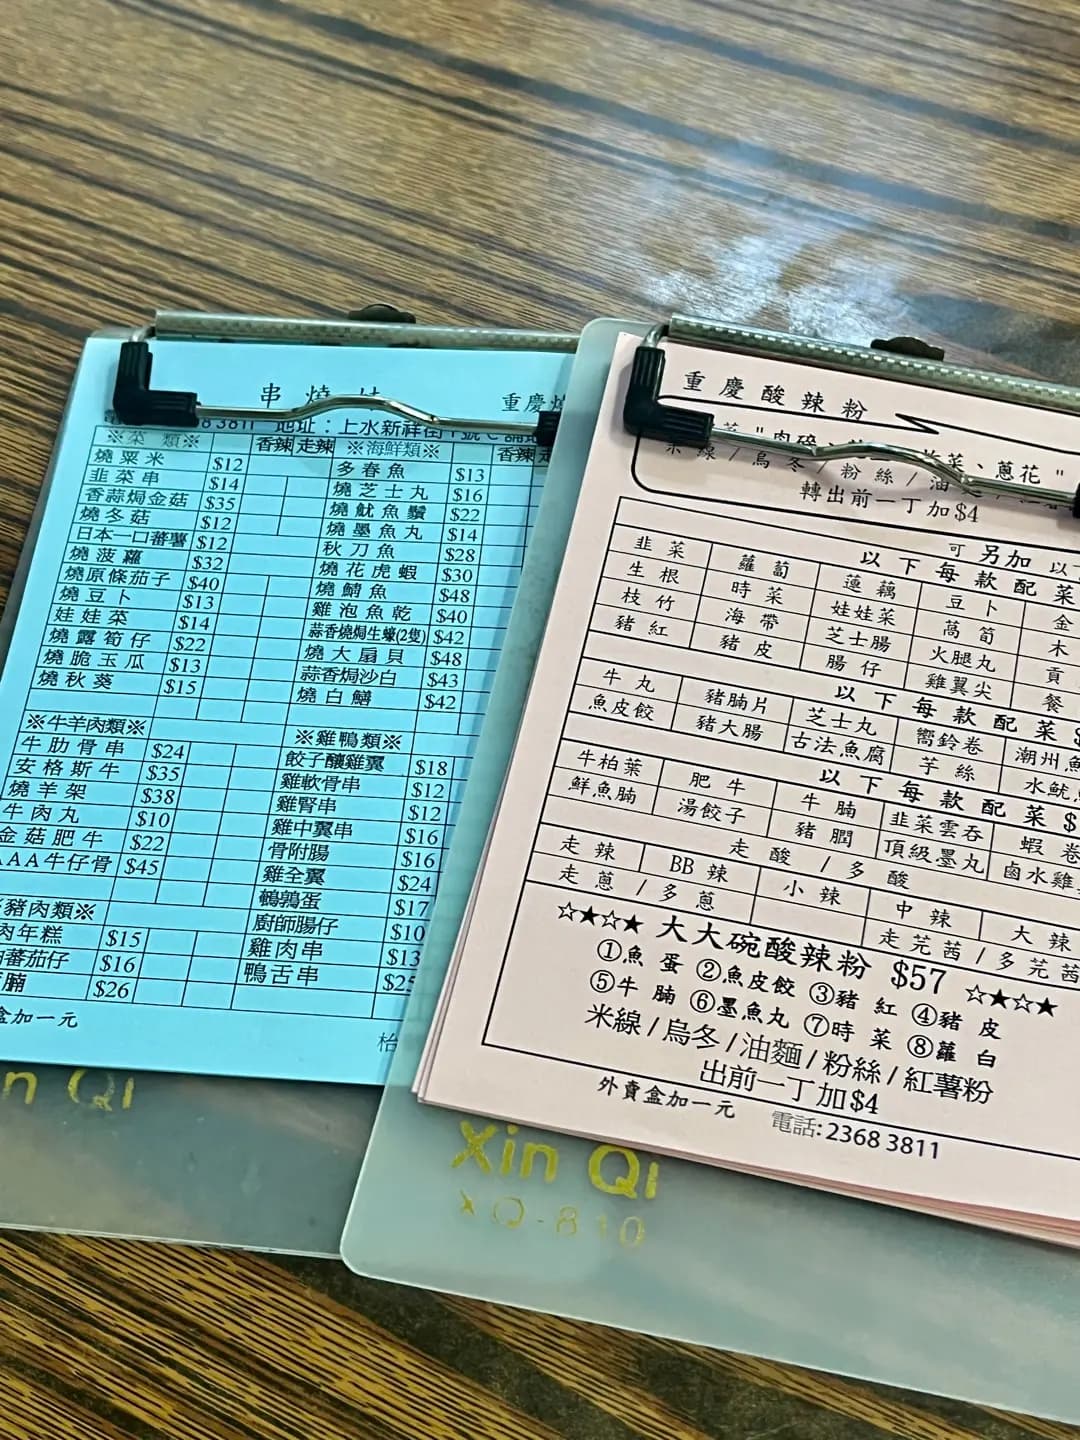 串燒
重慶
3811 地址：上水新祥街
※菜類※ 香辣 走辣
燒粟米 $12
韭菜串 $14
香蒜焗金菇 $35
燒冬菇 $12
日本一口蕃薯 $12
燒波蘿 $32
燒原條茄子 $40
燒豆卜 $13
娃娃菜 $14
燒露筍仔 $22
燒脆玉瓜 $13
燒秋葵 $15
※海鮮類※ 香辣
多春魚 $13
燒芝士丸 $16
燒魷魚鬚 $22
燒墨魚丸 $14
秋刀魚 $28
燒花虎蝦 $30
燒鯖魚 $48
雞泡魚乾 $40
蒜香燒焗生蠔(2隻) $42
燒大扇貝 $48
蒜香焗沙白 $43
燒白鱔 $42
※牛羊肉類※
牛肋骨串 $24
安格斯牛 $35
燒羊架 $38
牛肉丸 $10
金菇肥牛 $22
AAA牛仔骨 $45
※雞鴨類※
餃子釀雞翼 $18
雞軟骨串 $12
雞腎串 $12
雞中翼串 $16
骨附腸 $16
雞全翼 $24
鵪鶉蛋 $17
廚師腸仔 $10
雞肉串 $13
鴨舌串 $25
豬肉類※
肉年糕 $15
蕃茄仔 $16
腩 $26
盒加一元
n Qi
重慶酸辣粉
菜、蔥花"
米線/烏冬/粉絲/油
轉出前一丁加$4
可另加以
以下每款配菜
韭菜 蘿蔔 蓮藕 豆卜 金
生根 時菜 娃娃菜 萵筍 木
枝竹 海帶 芝士腸 火腿丸 貢
豬紅 豬皮 腸仔 雞翼尖 餐
以下每款配菜$
牛丸 豬腩片 芝士丸 嚮鈴卷 潮州魚
魚皮餃 豬大腸 古法魚腐 芋絲 水魷
以下每款配菜$
牛柏葉 肥牛 牛腩 韭菜雲吞 蝦卷
鮮魚腩 湯餃子 豬潤 頂級墨丸 鹵水雞
走酸/多酸
走辣 BB辣 小辣 中辣 大辣
走蔥/多蔥 走芫茜/多芫茜
☆★☆★ 大大碗酸辣粉 $57 ☆★☆★
①魚蛋 ②魚皮餃 ③豬紅 ④豬皮
⑤牛腩 ⑥墨魚丸 ⑦時菜 ⑧蘿白
米線/烏冬/油麵/粉絲/紅薯粉
出前一丁加$4
外賣盒加一元 電話:2368 3811
Xin Qi
XQ-810